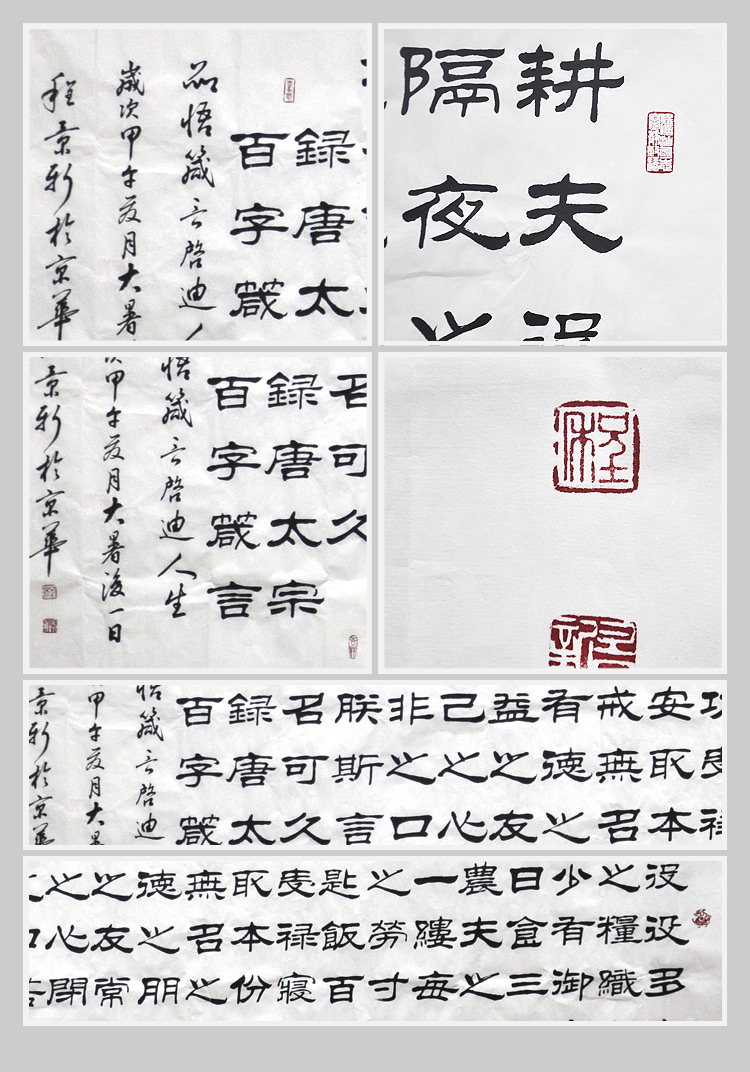 録唐太
百字箴
品悟箴言啓迪人
歲次甲午夏月大暑
程景新於京華
耕夫役
隔夜之
名可久
録唐太宗
百字箴言
悟箴言啓迪人生
次甲午夏月大暑後一日
景新於京華
程
新
功受禄
安取本
戒無名
有德之
益之友
己之心
非之口
朕斯言
名可久
録唐太
百字箴
悟箴言啓迪
甲午夏月大
景新於京華
役役多
之糧織
少有御
日食三
農夫之
一縷每
之勞寸
匙飯百
受禄寢
取本份
無名之
德之朋
之友常
之心閉